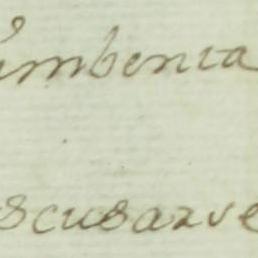 imbenta
scusarve